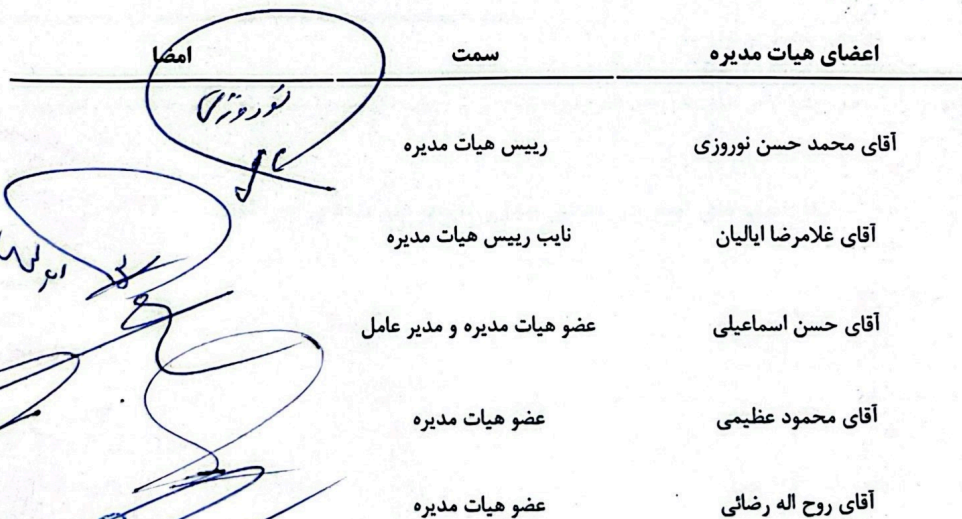 اعضای هیات مدیره سمت امضا
نوروزی
آقای محمد حسن نوروزی رییس هیات مدیره
آقای غلامرضا ایالیان نایب رییس هیات مدیره
آقای حسن اسماعیلی عضو هیات مدیره و مدیر عامل
آقای محمود عظیمی عضو هیات مدیره
آقای روح اله رضائی عضو هیات مدیره